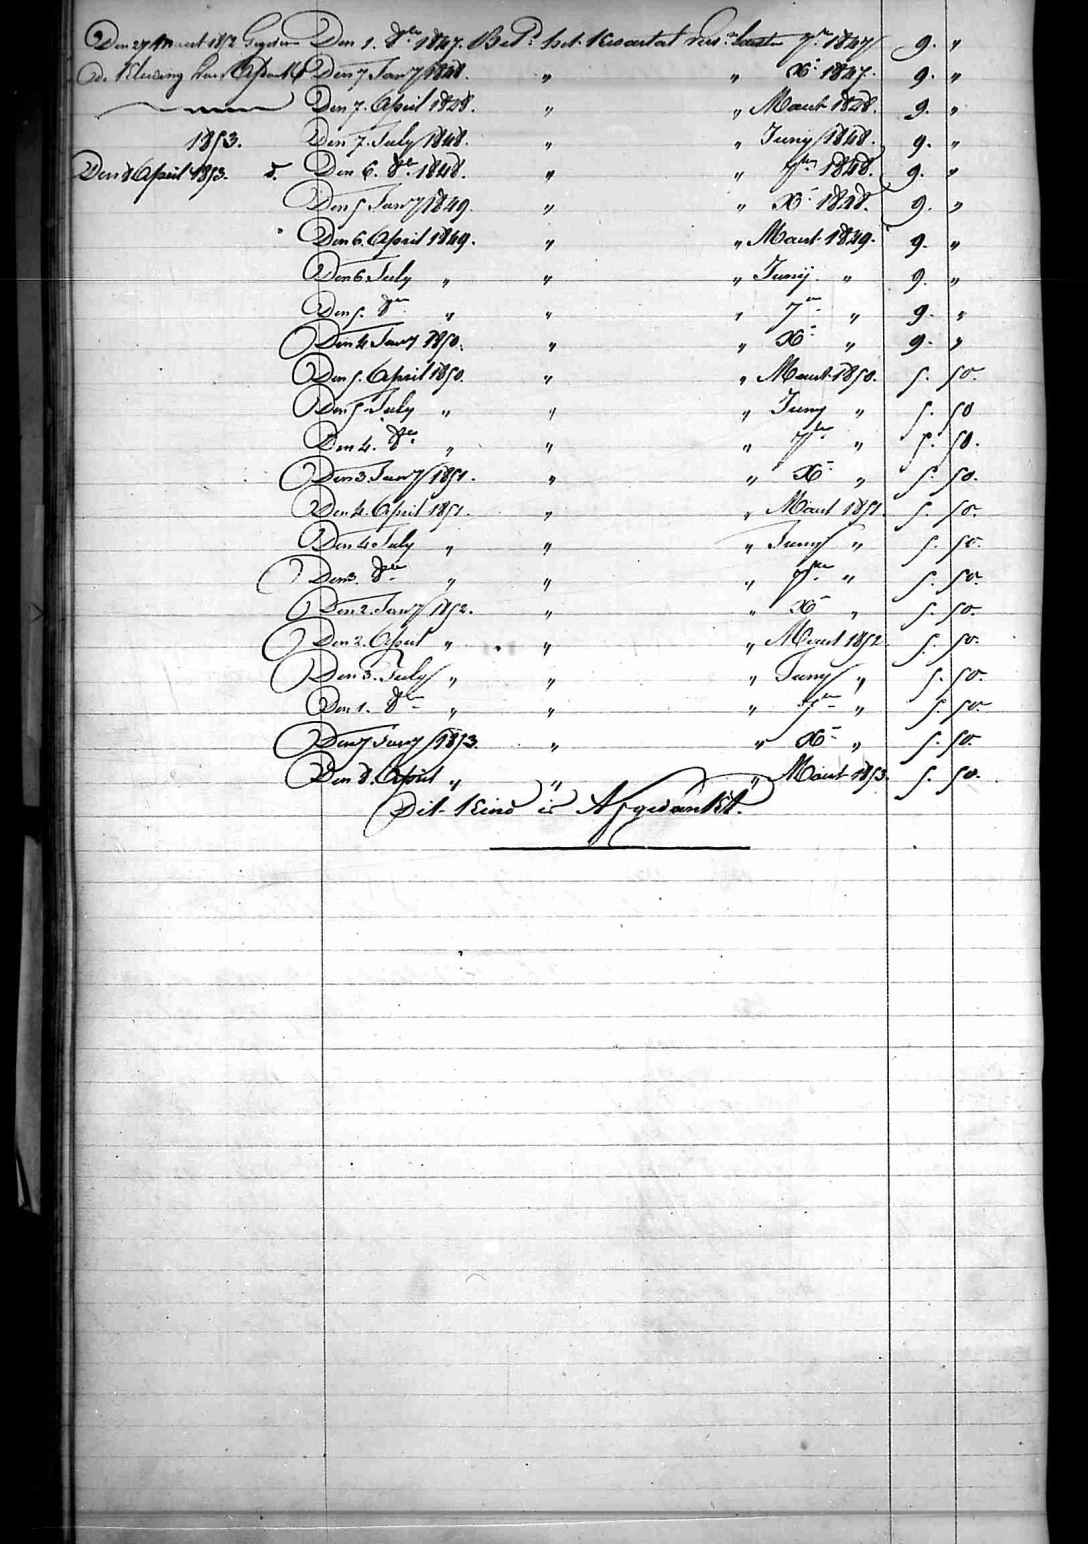 Den 27 Maart 1852 Gegeven Den 1. 8er 1847. Betd. het Kwartal van laste 7er 1847 9. "
de Kleding van Den 7 Jany 1848. " " Xr 1847. 9. "
Den 7. April 1848. " " Maart 1848. 9. "
1853. Den 7. July 1848. " " Juny 1848. 9. "
Den 8 April 1853. d. Den 6. 8er 1848. " " 7er 1848. 9. "
Den 5 Jany 1849. " " Xr 1848. 9. "
Den 6. April 1849. " " Maart 1849. 9. "
Den 6 July " " " Junij " 9. "
Den 5. 8er " " " 7er " 9. "
Den 4 Jany 1850. " " Xr " 9. "
Den 5. April 1850. " " Maart 1850. 5. 50.
Den 5 July " " " Juny " 5. 50
Den 4. 8er " " " 7er " 5. 50.
Den 3. Jany 1851. " " Xr " 5. 50.
Den 4. April 1851. " " Maart 1851. 5. 50.
Den 4 July " " " Juny " 5. 50.
Den 3. 8er " " " 7er " 5. 50.
Den 2. Jany 1852. " " Xr " 5. 50.
Den 2. April " " " Maart 1852 5. 50.
Den 3. July " " " Juny " 5. 50.
Den 1. 8er " " " 7er " 5. 50.
Den 7 Jany 1853. " " Xr " 5. 50.
Den 8. April " " " Maart 1853. 5. 50.
Dit Kind is Afgedankt.